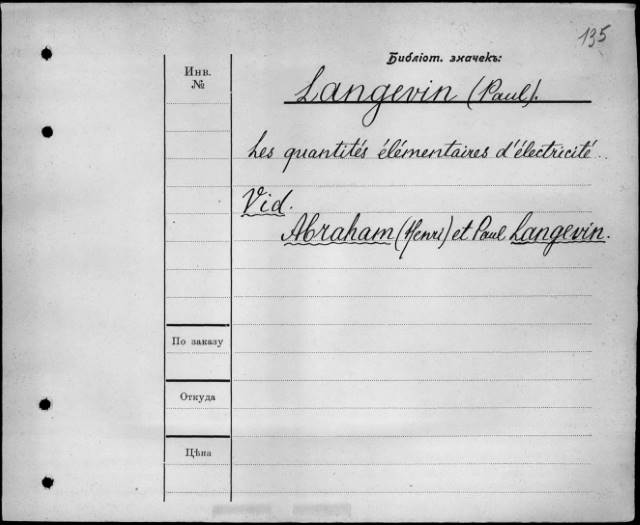 135
Библіот. значекъ:
Инв.
№
Langevin (Paul).
Les quantités élémentaires d'électricité.
Vid.
Abraham (Henri) et Paul Langevin.
По заказу
Откуда
Цѣна